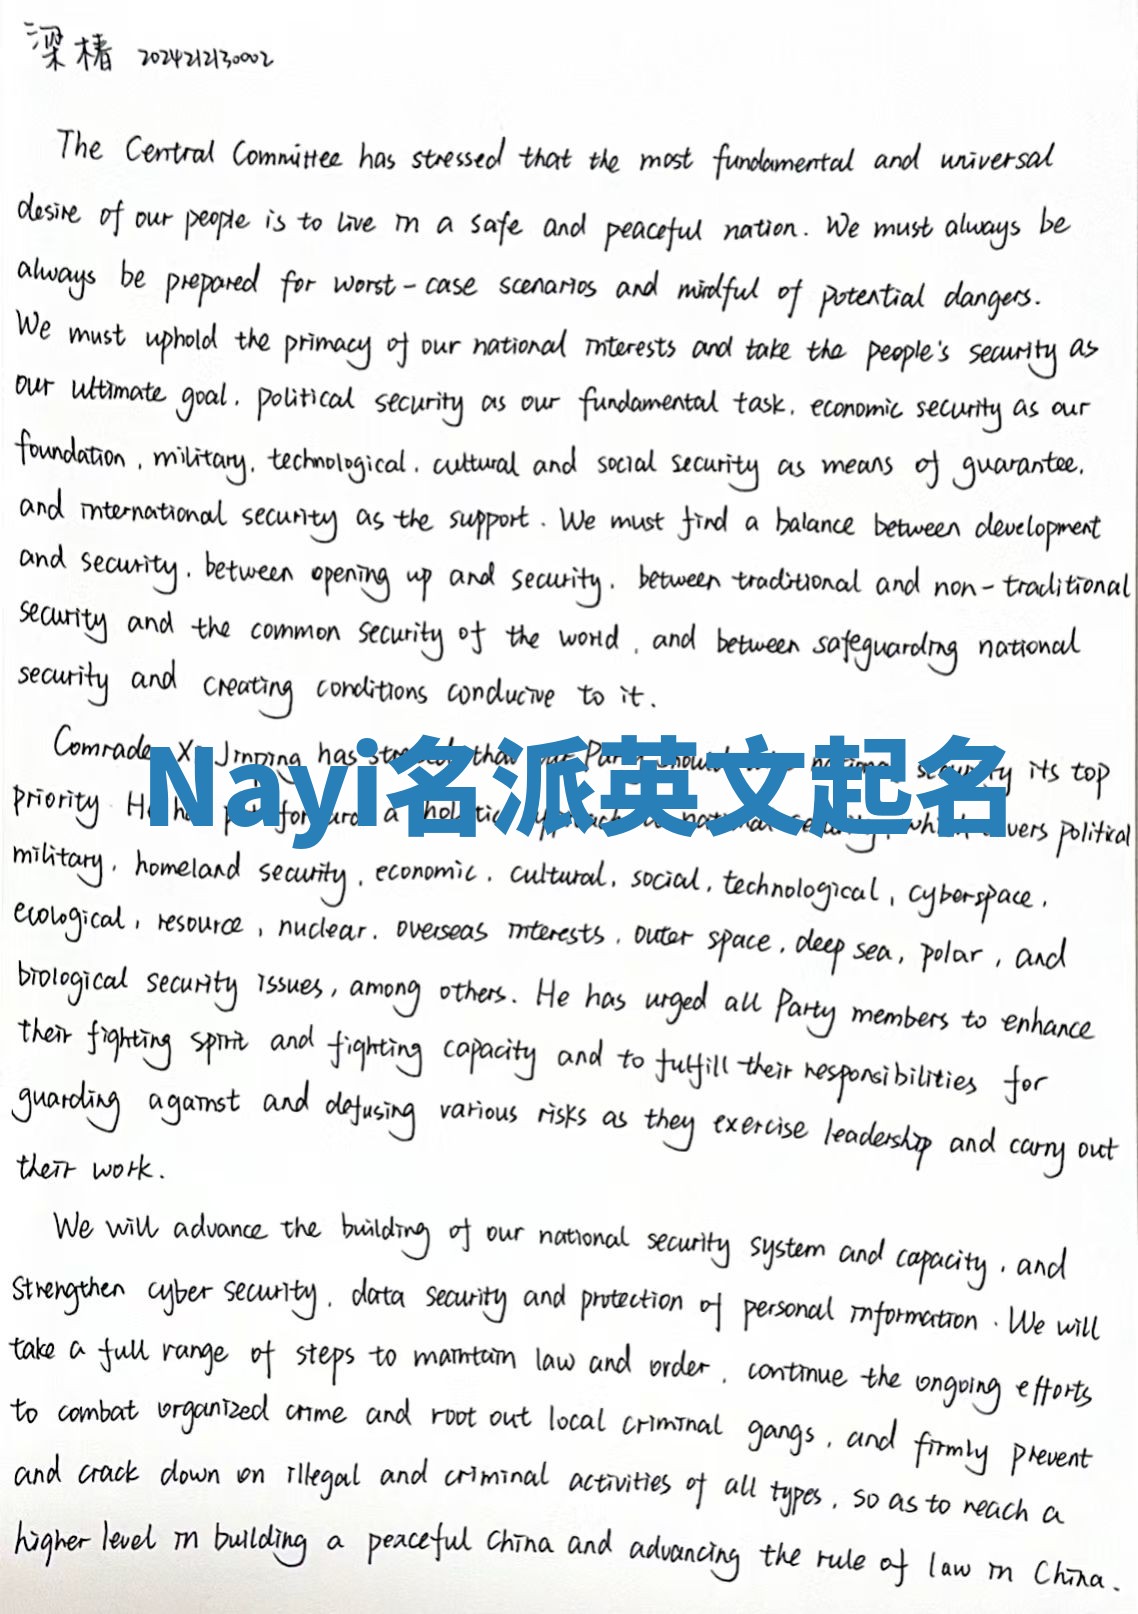 梁椿 2024212130002
The Central Committee has stressed that the most fundamental and universal
desire of our people is to live in a safe and peaceful nation. We must always be
always be prepared for worst-case scenarios and mindful of potential dangers.
We must uphold the primacy of our national interests and take the people's security as
our ultimate goal, political security as our fundamental task, economic security as our
foundation, military, technological, cultural and social security as means of guarantee,
and international security as the support. We must find a balance between development
and security, between opening up and security, between traditional and non-traditional
security and the common security of the world, and between safeguarding national
security and creating conditions conducive to it.
Comrade Xi Jinping has that Party should national security its top
Nayi名派英文起名
priority He has put forward a holistic approach national security, which covers political
military, homeland security, economic, cultural, social, technological, cyberspace,
ecological, resource, nuclear, overseas interests, outer space, deep sea, polar, and
biological security issues, among others. He has urged all Party members to enhance
their fighting spirit and fighting capacity and to fulfill their responsibilities for
guarding against and defusing various risks as they exercise leadership and carry out
their work.
We will advance the building of our national security system and capacity, and
strengthen cyber security, data security and protection of personal information. We will
take a full range of steps to maintain law and order, continue the ongoing efforts
to combat organized crime and root out local criminal gangs, and firmly prevent
and crack down on illegal and criminal activities of all types, so as to reach a
higher level in building a peaceful China and advancing the rule of law in China.